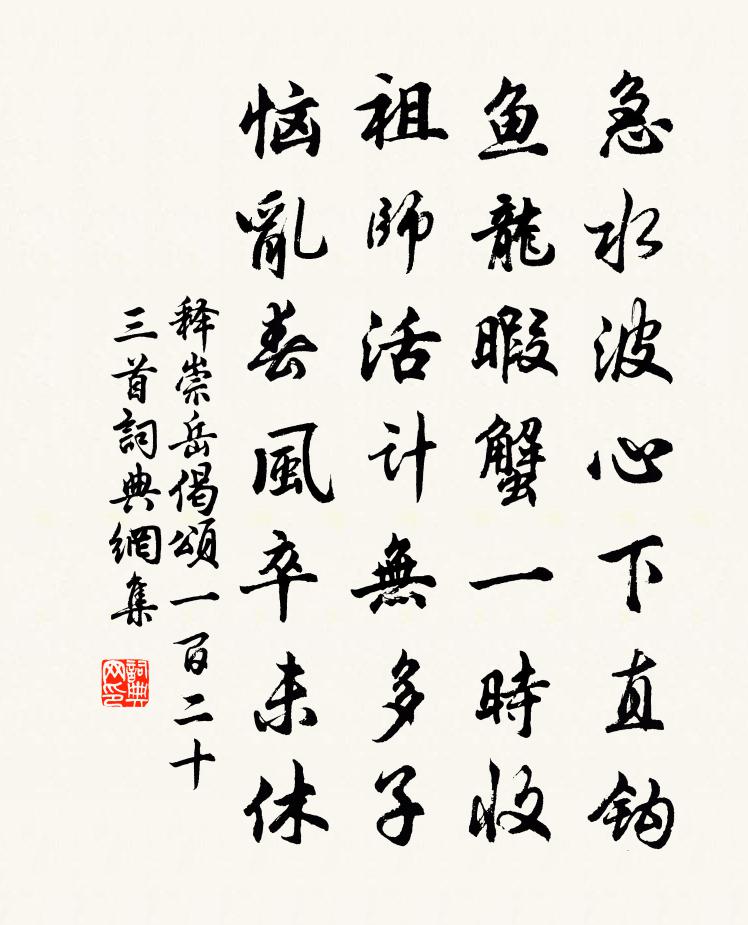 急水波心下直鈎
鱼龍暇蟹一時收
祖師活计無多子
恼亂春風卒未休
释崇岳偈頌一百二十
三首詞典網集
詞典网印